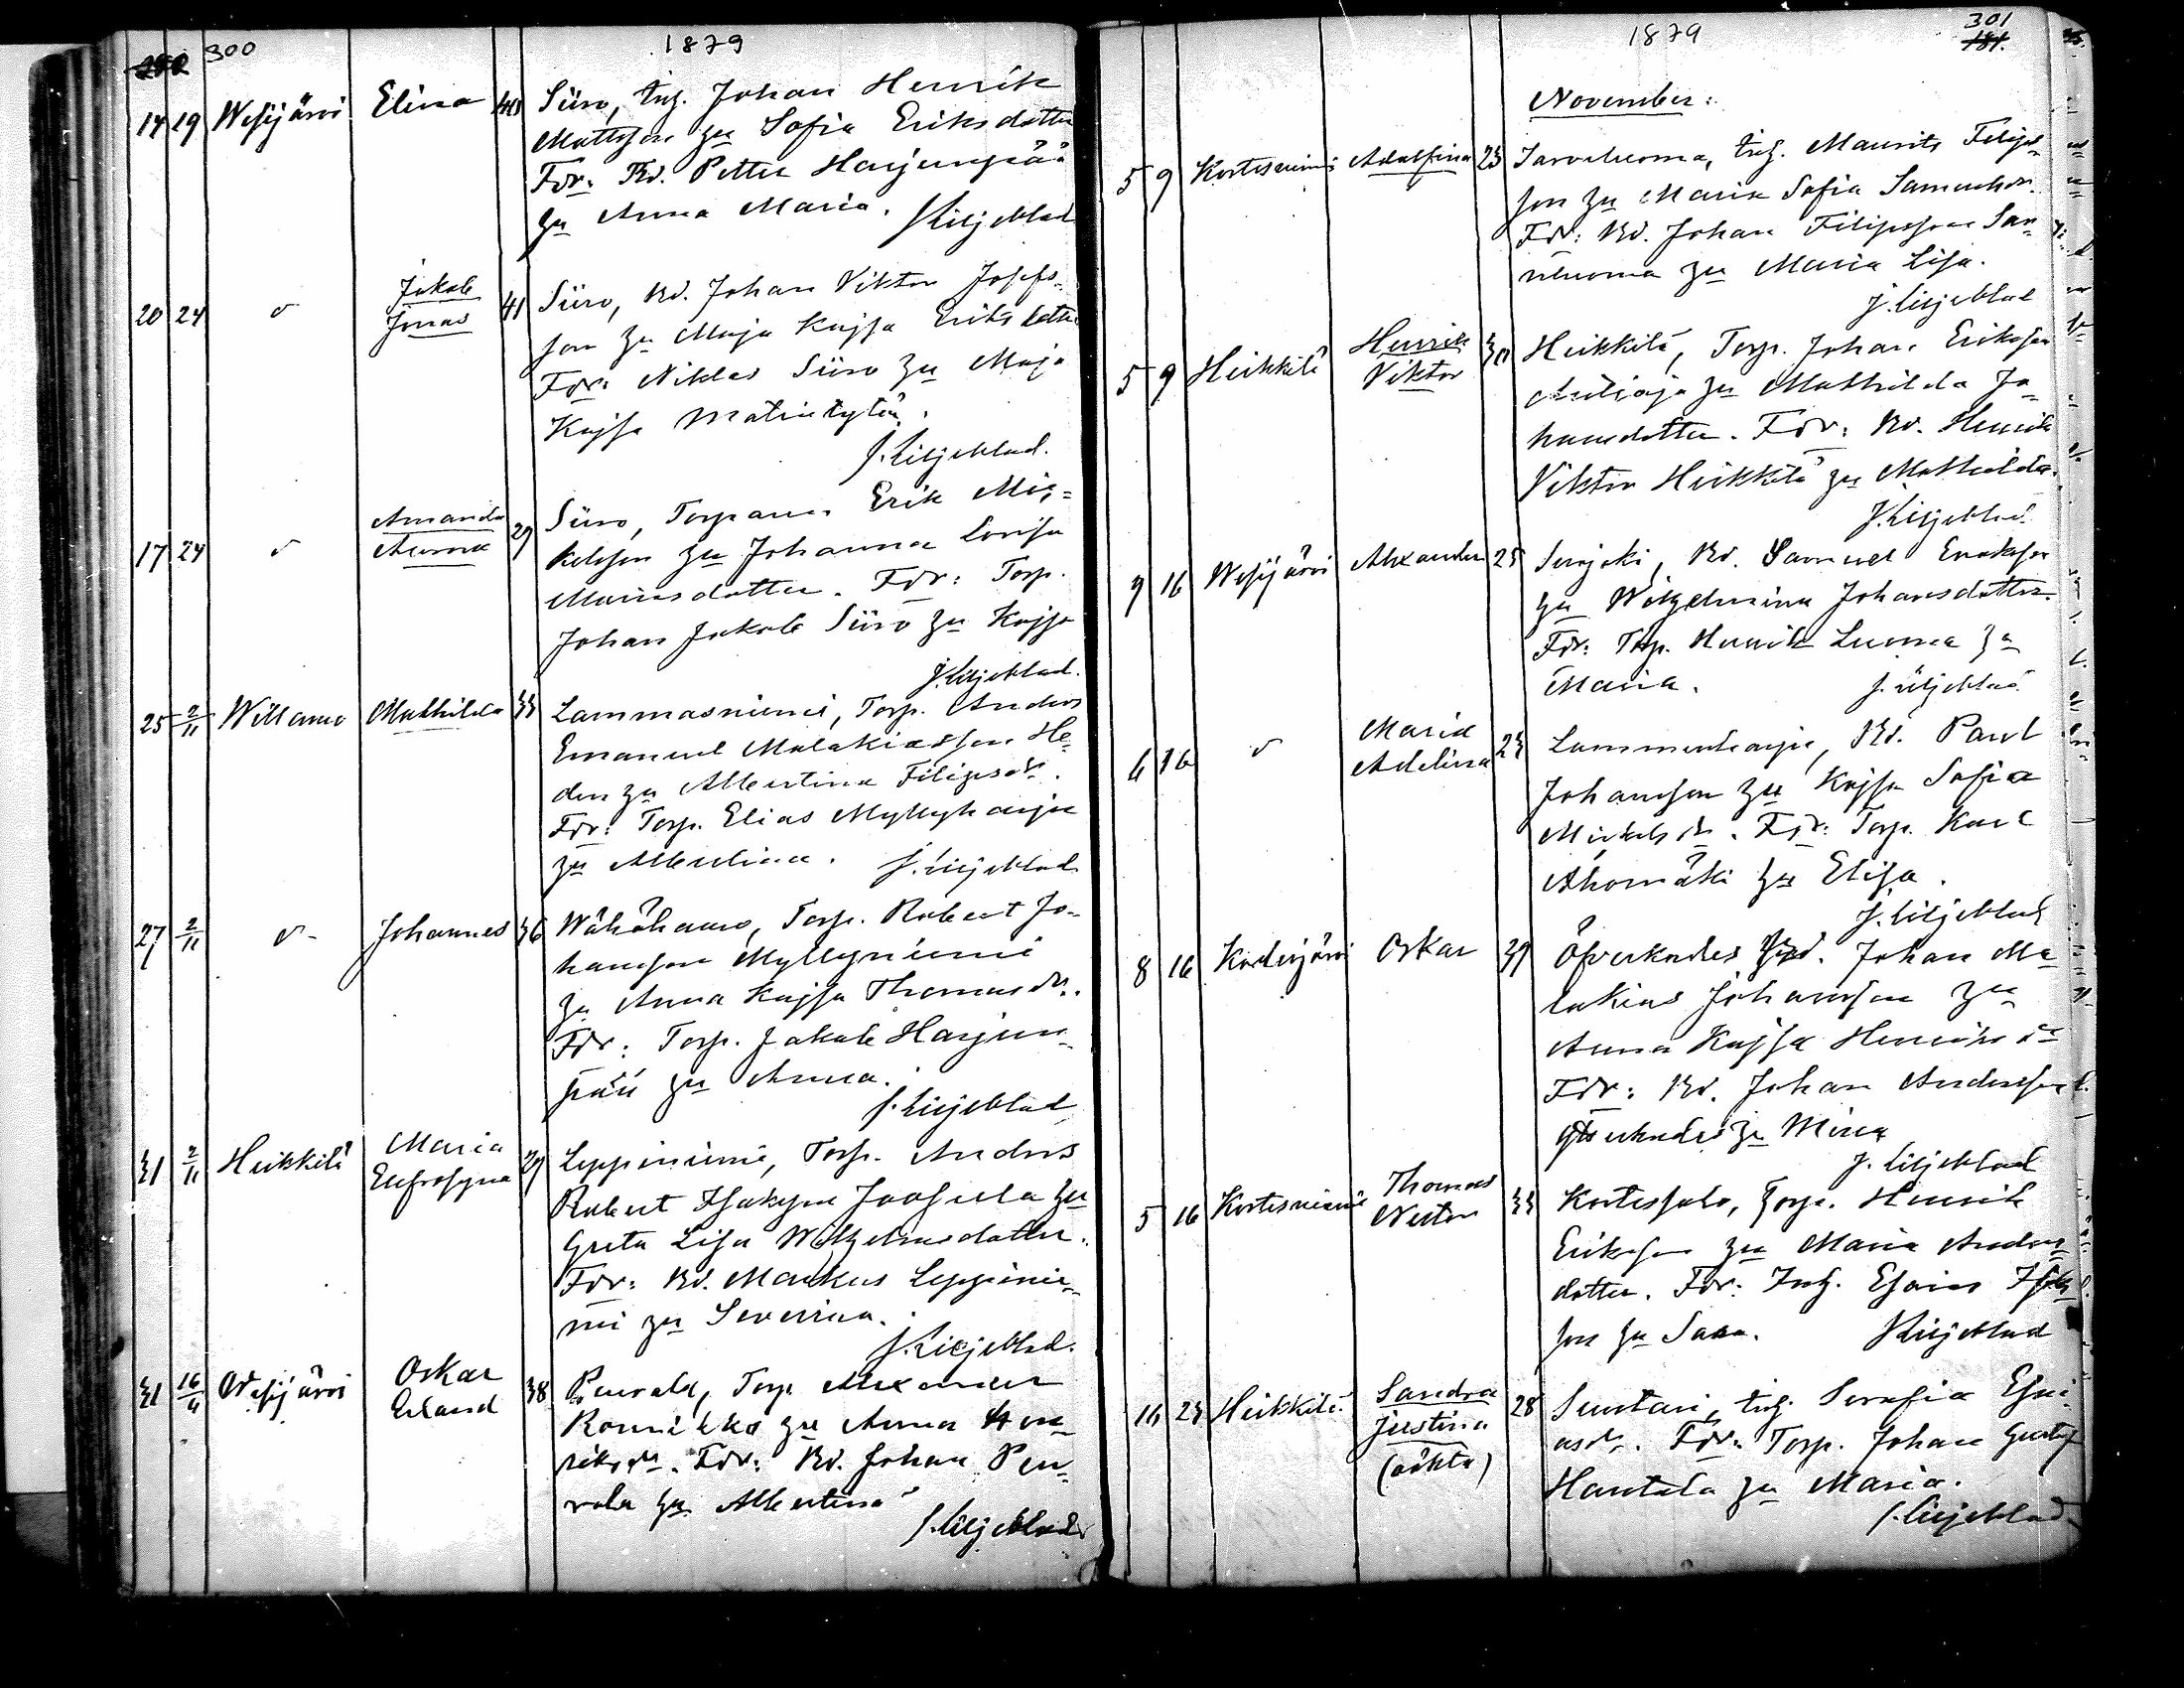 300
1879
14 19 Wesijärvi Elina 40 Siiro, Inh. Johan Henrik
Mattsson zu Sofia Eriksdotter
Fdr: Bd. Petter Harjunpää
zu Anna Maria. J Liljeblad
20 24 Jakob Jonas 41 Siiro, Bd. Johan Viktor Josefs-
son zu Maja Kajsa Eriksdotter
Fdr: Niklas Siiro zu Maja
Kajsa
J. Liljeblad.
17 24 Amanda 29 Siiro, Torparen Erik Mic-
kelsson zu Johanna Lovisa
Mariasdotter. Fdr: Torp.
Johan Jakob Siiro zu Kajsa
J. Liljeblad.
25 2/11 Willamo Mathilda 33 Lammasniemi, Torp. Anders
Emanuel Malakiasson He-
den zu Albertina Filipsdr.
Fdr: Torp. Elias Myllyharju
zu Albertina. J. Liljeblad
27 2/11 Johannes 36 Wähähauro, Torp. Robert Jo-
hansson Myllyniemi
zu Anna Kajsa Thomasdr.
Fdr: Torp. Jakob Harjun-
pää zu Anna.
J. Liljeblad
31 2/11 Heikkilä Maria Eufrosyna 29 Leppiniemi, Torp. Anders
Robert Isaksson Joosula zu
Greta Lisa Wilhelmsdotter.
Fdr: Bd. Markus Leppinie-
mi zu Severina.
J. Liljeblad.
31 16/11 Wesijärvi Oskar Erland 38 Penrala, Torp. Alexander
zu Anna Hen-
riksdr. Fdr: Bd. Johan Pen-
rala zu Albertina
J. Liljeblad
1879
301
181.
November:
5 9 Kortesniemi Adolfina 23 Sarveluoma, Inh. Maurits Filips-
son zu Maria Sofia Samuelsdr.
Fdr: Bd. Johan Filipsson Sar-
veluoma zu Maria Lisa.
J. Liljeblad
5 9 Heikkilä Henrik Viktor 30 Heikkilä, Torp. Johan Eriksson
zu Mathilda Jo-
hansdotter. Fdr: Bd. Henrik
Viktor Heikkilä zu Mathilda.
J. Liljeblad.
9 16 Wesijärvi Alexander 25 Bd. Samuel
zu Wilhelmina Johansdotter.
Fdr: Torp. Henrik Luoma zu
Maria. J. Liljeblad.
6 16 Maria Adelina 23 Lammenharju, Bd. Paul
Johansson zu Kajsa Sofia
Mickelsdr. Fdr: Torp. Karl
Ahomäki zu Elisa.
J. Liljeblad
8 16 Kodesjärvi Oskar 39 Öfverkodes Bd. Johan Ma-
lakias Johansson zu
Anna Kajsa Henriksdr
Fdr: Bd. Johan Andersson
zu Mina
J. Liljeblad
5 16 Kortesniemi Thomas Nestor 33 Kortessalo, Torp. Henrik
Eriksson zu Maria Anders-
dotter. Fdr: Inh. Esaias Isaks-
son zu Sara. J Liljeblad
16 23 Heikkilä Sandra Justina (oäkta) 28 Suntari, Inh. Serafia Esai-
asdr. Fdr: Torp. Johan Gustaf
Hautala zu Maria.
J. Liljeblad